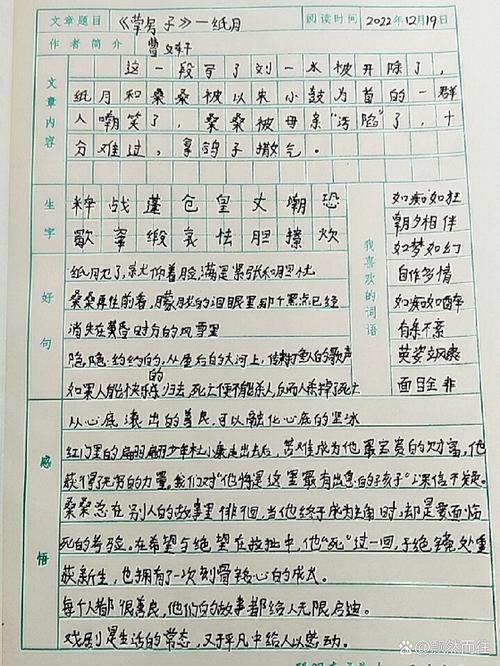 文章题目 《草房子》—纸月 阅读时间 2022年12月19日
作者简介 曹文轩
文章内容
这一段写了刘一水被开除了，
纸月和桑桑被以朱小鼓为首的一群
人嘲笑了，桑桑被母亲“诱陷”了，十
分难过，拿鸽子撒气。
生字
粹 战 蓬 仓 皇 丈 嘲 恐
歇 辈 缎 哀 怯 胆 撩 炊
我喜欢的词语
如痴如狂
朝夕相伴
如梦如幻
自作多情
如痴如醉
有条不紊
英姿飒爽
面目全非
好句
纸月见了，就仰着脸，满是紧张和胆怯
桑桑再往前看，朦胧的泪眼里，那个黑点已经
消失在黄昏时分的风雪里
隐隐约约的，从屋后的大河上，传来打鱼人的歌声
如果人能快乐的归去，死亡便不能杀人，反而人杀掉了死亡
感悟
从心底滚出的善良，可以融化心底的坚冰
红门里的翩翩少年杜小康走出去后，苦难成为他最宝贵的财富，他
获得了无穷的力量。我们对“他将是这里最有出息的孩子”深信不疑。
桑桑总在别人的故事里徘徊，当他终于成为主角时，却是要面临
死的考验。在希望与绝望在拉扯中，他“死”过一回，于绝望处重
获新生，也拥有了一次刻骨铭心的成长。
每个人都很善良，他们的故事都给人无限启迪。
戏剧是生活的常态，又于平凡中给人以感动。
飘然而往